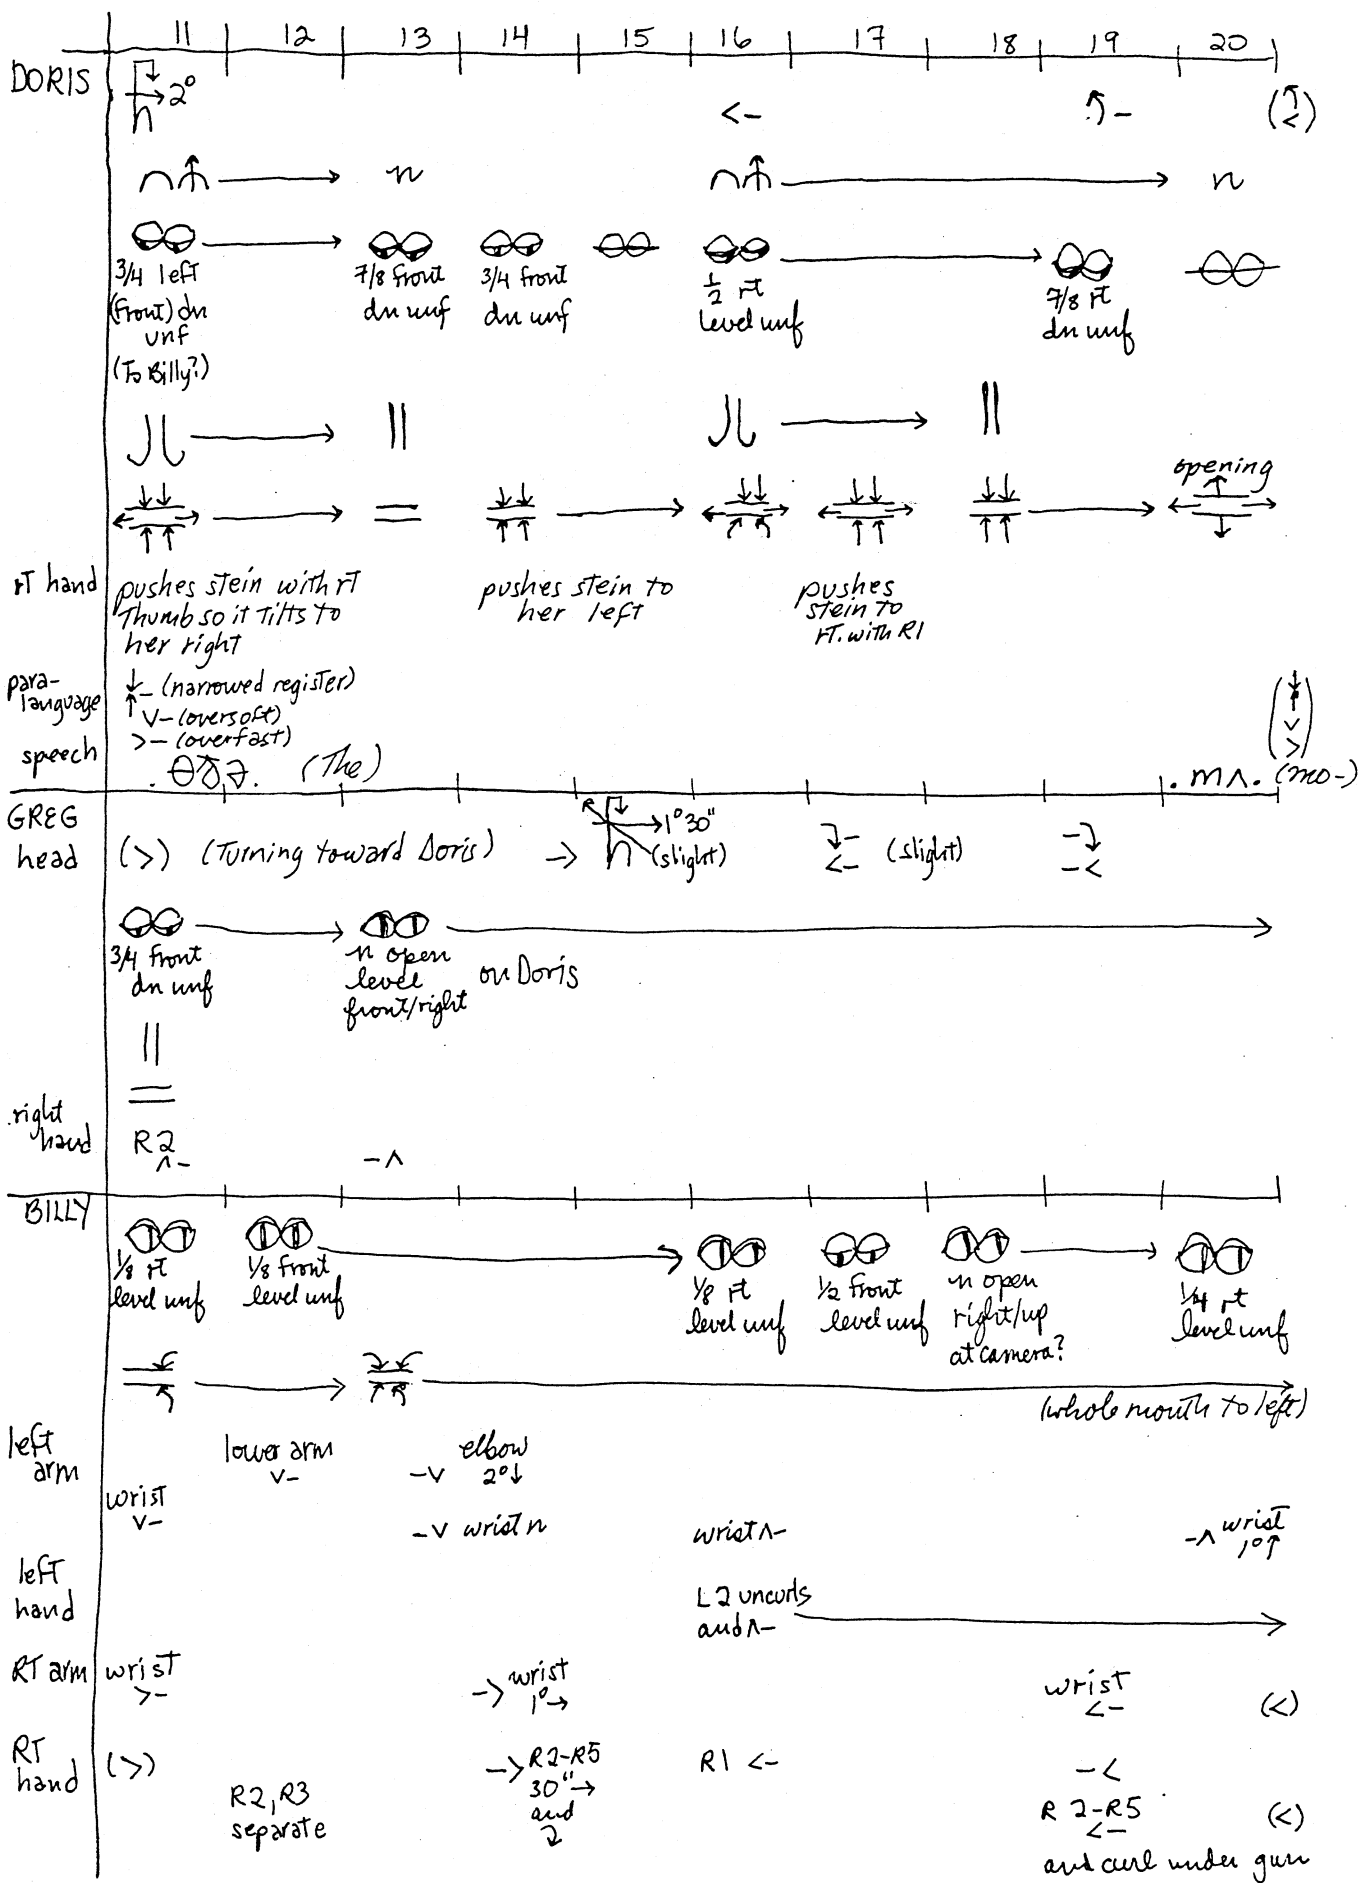 11 12 13 14 15 16 17 18 19 20
DORIS
h → 2°
<- 
n → n
n → n
3/4 left
(front) dn
unf
(To Billy?)
7/8 front
dn unf
3/4 front
dn unf
1/2 rt
level unf
7/8 rt
dn unf
opening
rt hand
pushes stein with rt
Thumb so it Tilts to
her right
pushes stein to
her left
pushes
stein to
rT. with R1
para-
language
(narrowed register)
v- (oversoft)
>- (overfast)
speech
(The)
.mʌ. (mo-)
GREG
head
(>) (Turning toward Doris) -> h → 1°30"
(slight)
<- (slight)
-<
3/4 front
dn unf
n open
level
front/right
on Doris
right
hand
R2
^-
-^
BILLY
1/8 rt
level unf
1/8 front
level unf
1/8 rt
level unf
1/2 front
level unf
n open
right/up
at camera?
1/4 rt
level unf
(whole mouth to left)
left
arm
lower arm
v-
-v elbow
2°↓
wrist
v-
-v wrist n
wrist ^-
-^ wrist
1°↑
left
hand
L2 uncurls
and ^-
RT arm
wrist
>-
-> wrist
1°→
wrist
<-
(<)
RT
hand
(>)
R2, R3
separate
-> R2-R5
30"→
and
R1 <-
-<
R2-R5
<-
(<)
and curl under gun